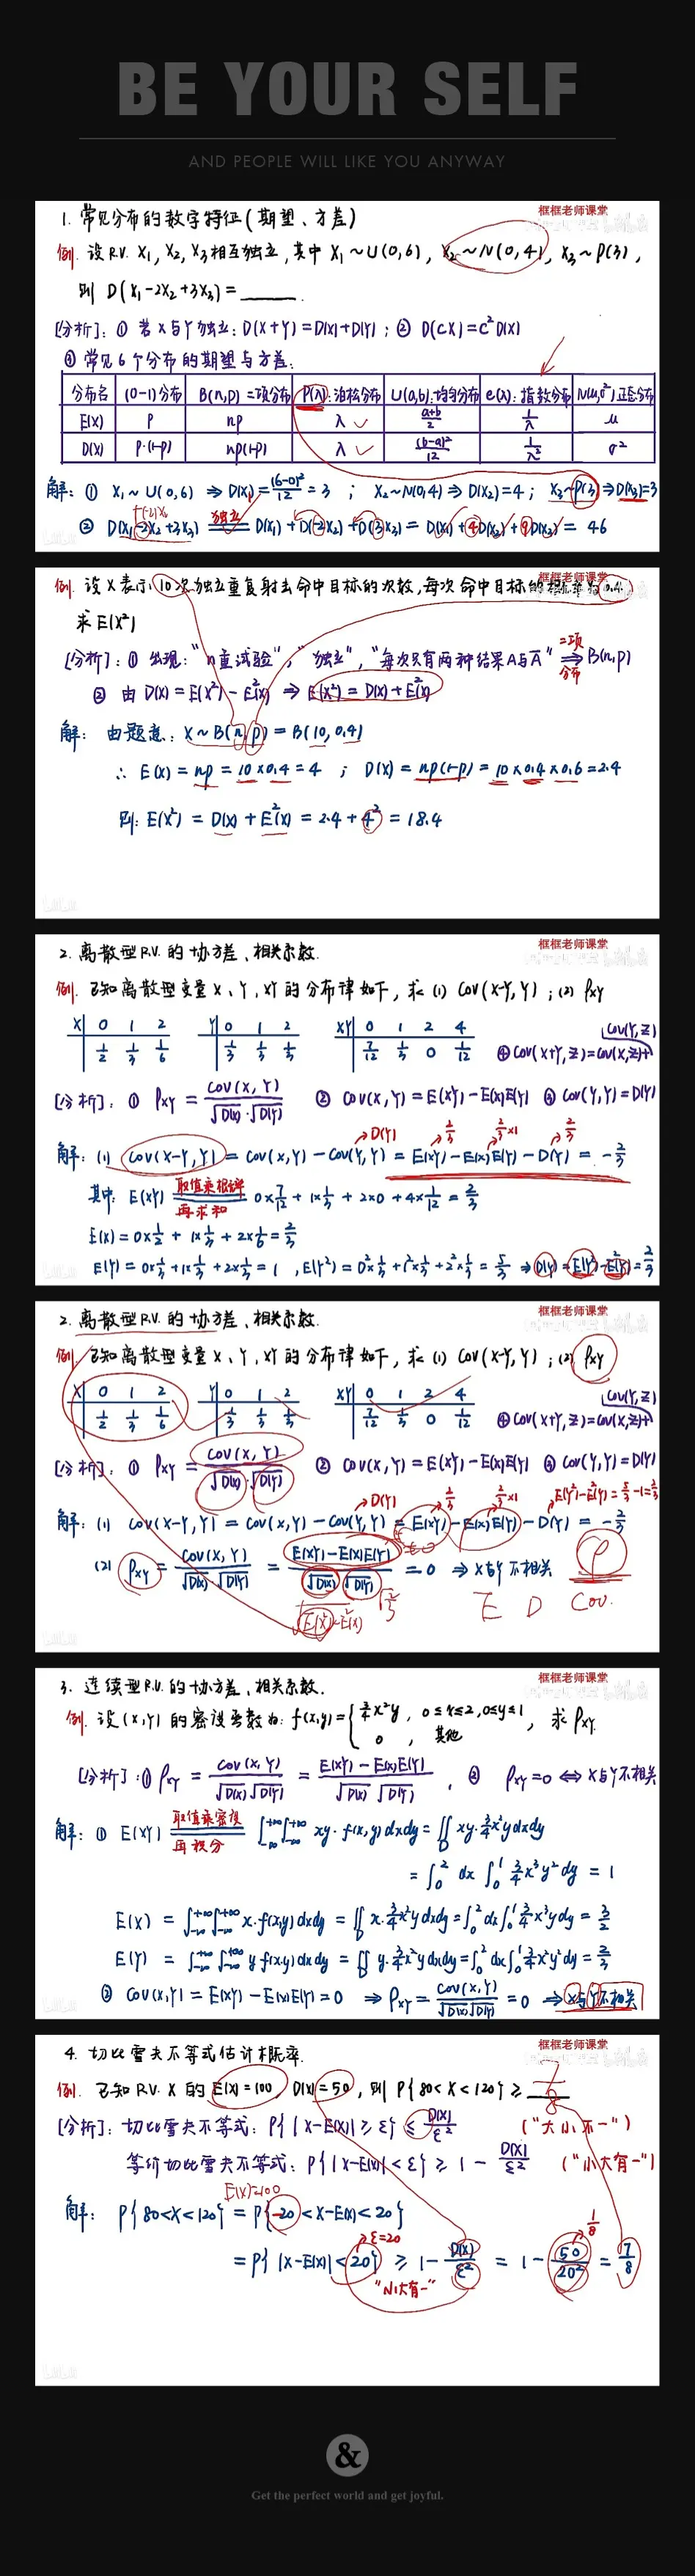 BE YOUR SELF
AND PEOPLE WILL LIKE YOU ANYWAY
框框老师课堂
1. 常见分布的数字特征(期望、方差)
例. 设 R.V. X₁, X₂, X₃ 相互独立, 其中 X₁~U(0,6), X₂~N(0,4), X₃~P(3),
则 D(X₁-2X₂+3X₃)=____.
[分析]: ① 若X与Y独立: D(X+Y)=D(X)+D(Y); ② D(CX)=C²D(X)
③ 常见6个分布的期望与方差:
分布名 (0-1)分布 B(n,p)二项分布 P(λ):泊松分布 U(a,b):均匀分布 e(λ):指数分布 N(μ,σ²)正态分布
E(X) P np λ (a+b)/2 1/λ μ
D(X) P·(1-P) np(1-p) λ (b-a)²/12 1/λ² σ²
解: ① X₁~U(0,6) ⇒ D(X₁)=(6-0)²/12=3 ; X₂~N(0,4) ⇒ D(X₂)=4 ; X₃~P(3) ⇒ D(X₃)=3
+(-2)X₂
② D(X₁-2X₂+3X₃) 独立 = D(X₁)+D(-2X₂)+D(3X₃) = D(X₁)+4D(X₂)+9D(X₃) = 46
框框老师课堂
例. 设X表示10次独立重复射击命中目标的次数, 每次命中目标的概率为0.4,
求E(X²)
[分析]: ① 出现: "n重试验", "独立", "每次只有两种结果A与Ā" 二项分布 ⇒ B(n,p)
② 由 D(X)=E(X²)-E²(X) ⇒ E(X²)=D(X)+E²(X)
解: 由题意: X~B(n,p)=B(10,0.4)
∴ E(X)=np=10×0.4=4 ; D(X)=np(1-p)=10×0.4×0.6=2.4
则: E(X²)=D(X)+E²(X)=2.4+4²=18.4
框框老师课堂
2. 离散型R.V.的协方差、相关系数.
例. 已知离散型变量X、Y、XY的分布律如下, 求(1) Cov(X-Y,Y) ; (2) ρXY
X 0 1 2 Y 0 1 2 XY 0 1 2 4
1/2 1/3 1/6 1/3 1/3 1/3 7/12 1/3 0 1/12 ④ Cov(X+Y,Z)=Cov(X,Z)+Cov(Y,Z)
[分析]: ① ρXY=Cov(X,Y)/(√D(X)·√D(Y)) ② Cov(X,Y)=E(XY)-E(X)E(Y) ③ Cov(Y,Y)=D(Y)
→D(Y) 2/3 2/3×1 2/3
解: (1) Cov(X-Y,Y)=Cov(X,Y)-Cov(Y,Y)=E(XY)-E(X)E(Y)-D(Y)=-2/3
其中: E(XY) 取值乘概率再求和 = 0×7/12+1×1/3+2×0+4×1/12=2/3
E(X)=0×1/2+1×1/3+2×1/6=2/3
E(Y)=0×1/3+1×1/3+2×1/3=1 , E(Y²)=0²×1/3+1²×1/3+2²×1/3=5/3 ⇒ D(Y)=E(Y²)-E²(Y)=2/3
框框老师课堂
2. 离散型R.V.的协方差、相关系数.
例. 已知离散型变量X、Y、XY的分布律如下, 求(1) Cov(X-Y,Y) ; (2) ρXY
X 0 1 2 Y 0 1 2 XY 0 1 2 4
1/2 1/3 1/6 1/3 1/3 1/3 7/12 1/3 0 1/12 ④ Cov(X+Y,Z)=Cov(X,Z)+Cov(Y,Z)
[分析]: ① ρXY=Cov(X,Y)/(√D(X)·√D(Y)) ② Cov(X,Y)=E(XY)-E(X)E(Y) ③ Cov(Y,Y)=D(Y)
→D(Y) 2/3 2/3×1 E(Y²)-E²(Y)=5/3-1=2/3
解: (1) Cov(X-Y,Y)=Cov(X,Y)-Cov(Y,Y)=E(XY)-E(X)E(Y)-D(Y)=-2/3
(2) ρXY=Cov(X,Y)/(√D(X)√D(Y))=(E(XY)-E(X)E(Y))/(√D(X)√D(Y))=0 ⇒ X与Y不相关 ρ
E(X²)-E²(X) √2/3 E D Cov.
框框老师课堂
3. 连续型R.V.的协方差、相关系数.
例. 设(X,Y)的密度函数为: f(x,y)={3/4x²y, 0≤x≤2,0≤y≤1
0 , 其他 , 求ρXY.
[分析]: ① ρXY=Cov(X,Y)/(√D(X)√D(Y))=(E(XY)-E(X)E(Y))/(√D(X)√D(Y)), ② ρXY=0 ⇔ X与Y不相关
解: ① E(XY) 取值乘密度再积分 = ∫₋∞⁺∞∫₋∞⁺∞ xy·f(x,y)dxdy=∬D xy·3/4x²ydxdy
=∫₀²dx∫₀¹3/4x³y²dy=1
E(X)=∫₋∞⁺∞∫₋∞⁺∞x·f(x,y)dxdy=∬D x·3/4x²ydxdy=∫₀²dx∫₀¹3/4x³ydy=3/2
E(Y)=∫₋∞⁺∞∫₋∞⁺∞y f(x,y)dxdy=∬D y·3/4x²ydxdy=∫₀²dx∫₀¹3/4x²y²dy=2/3
② Cov(X,Y)=E(XY)-E(X)E(Y)=0 ⇒ ρXY=Cov(X,Y)/(√D(X)√D(Y))=0 ⇒ X与Y不相关
框框老师课堂
4. 切比雪夫不等式估计概率.
例. 已知R.V. X的E(X)=100, D(X)=50, 则P{80<X<120}≥ 7/8
[分析]: 切比雪夫不等式: P{|X-E(X)|≥ε}≤D(X)/ε² ("大小不一")
等价切比雪夫不等式: P{|X-E(X)|<ε}≥1-D(X)/ε² ("小大有一")
E(X)=100
解: P{80<X<120}=P{-20<X-E(X)<20}
→ε=20 1/8
=P{|X-E(X)|<20}≥1-D(X)/ε²=1-50/20²=7/8
"小大有一"
&
Get the perfect world and get joyful.